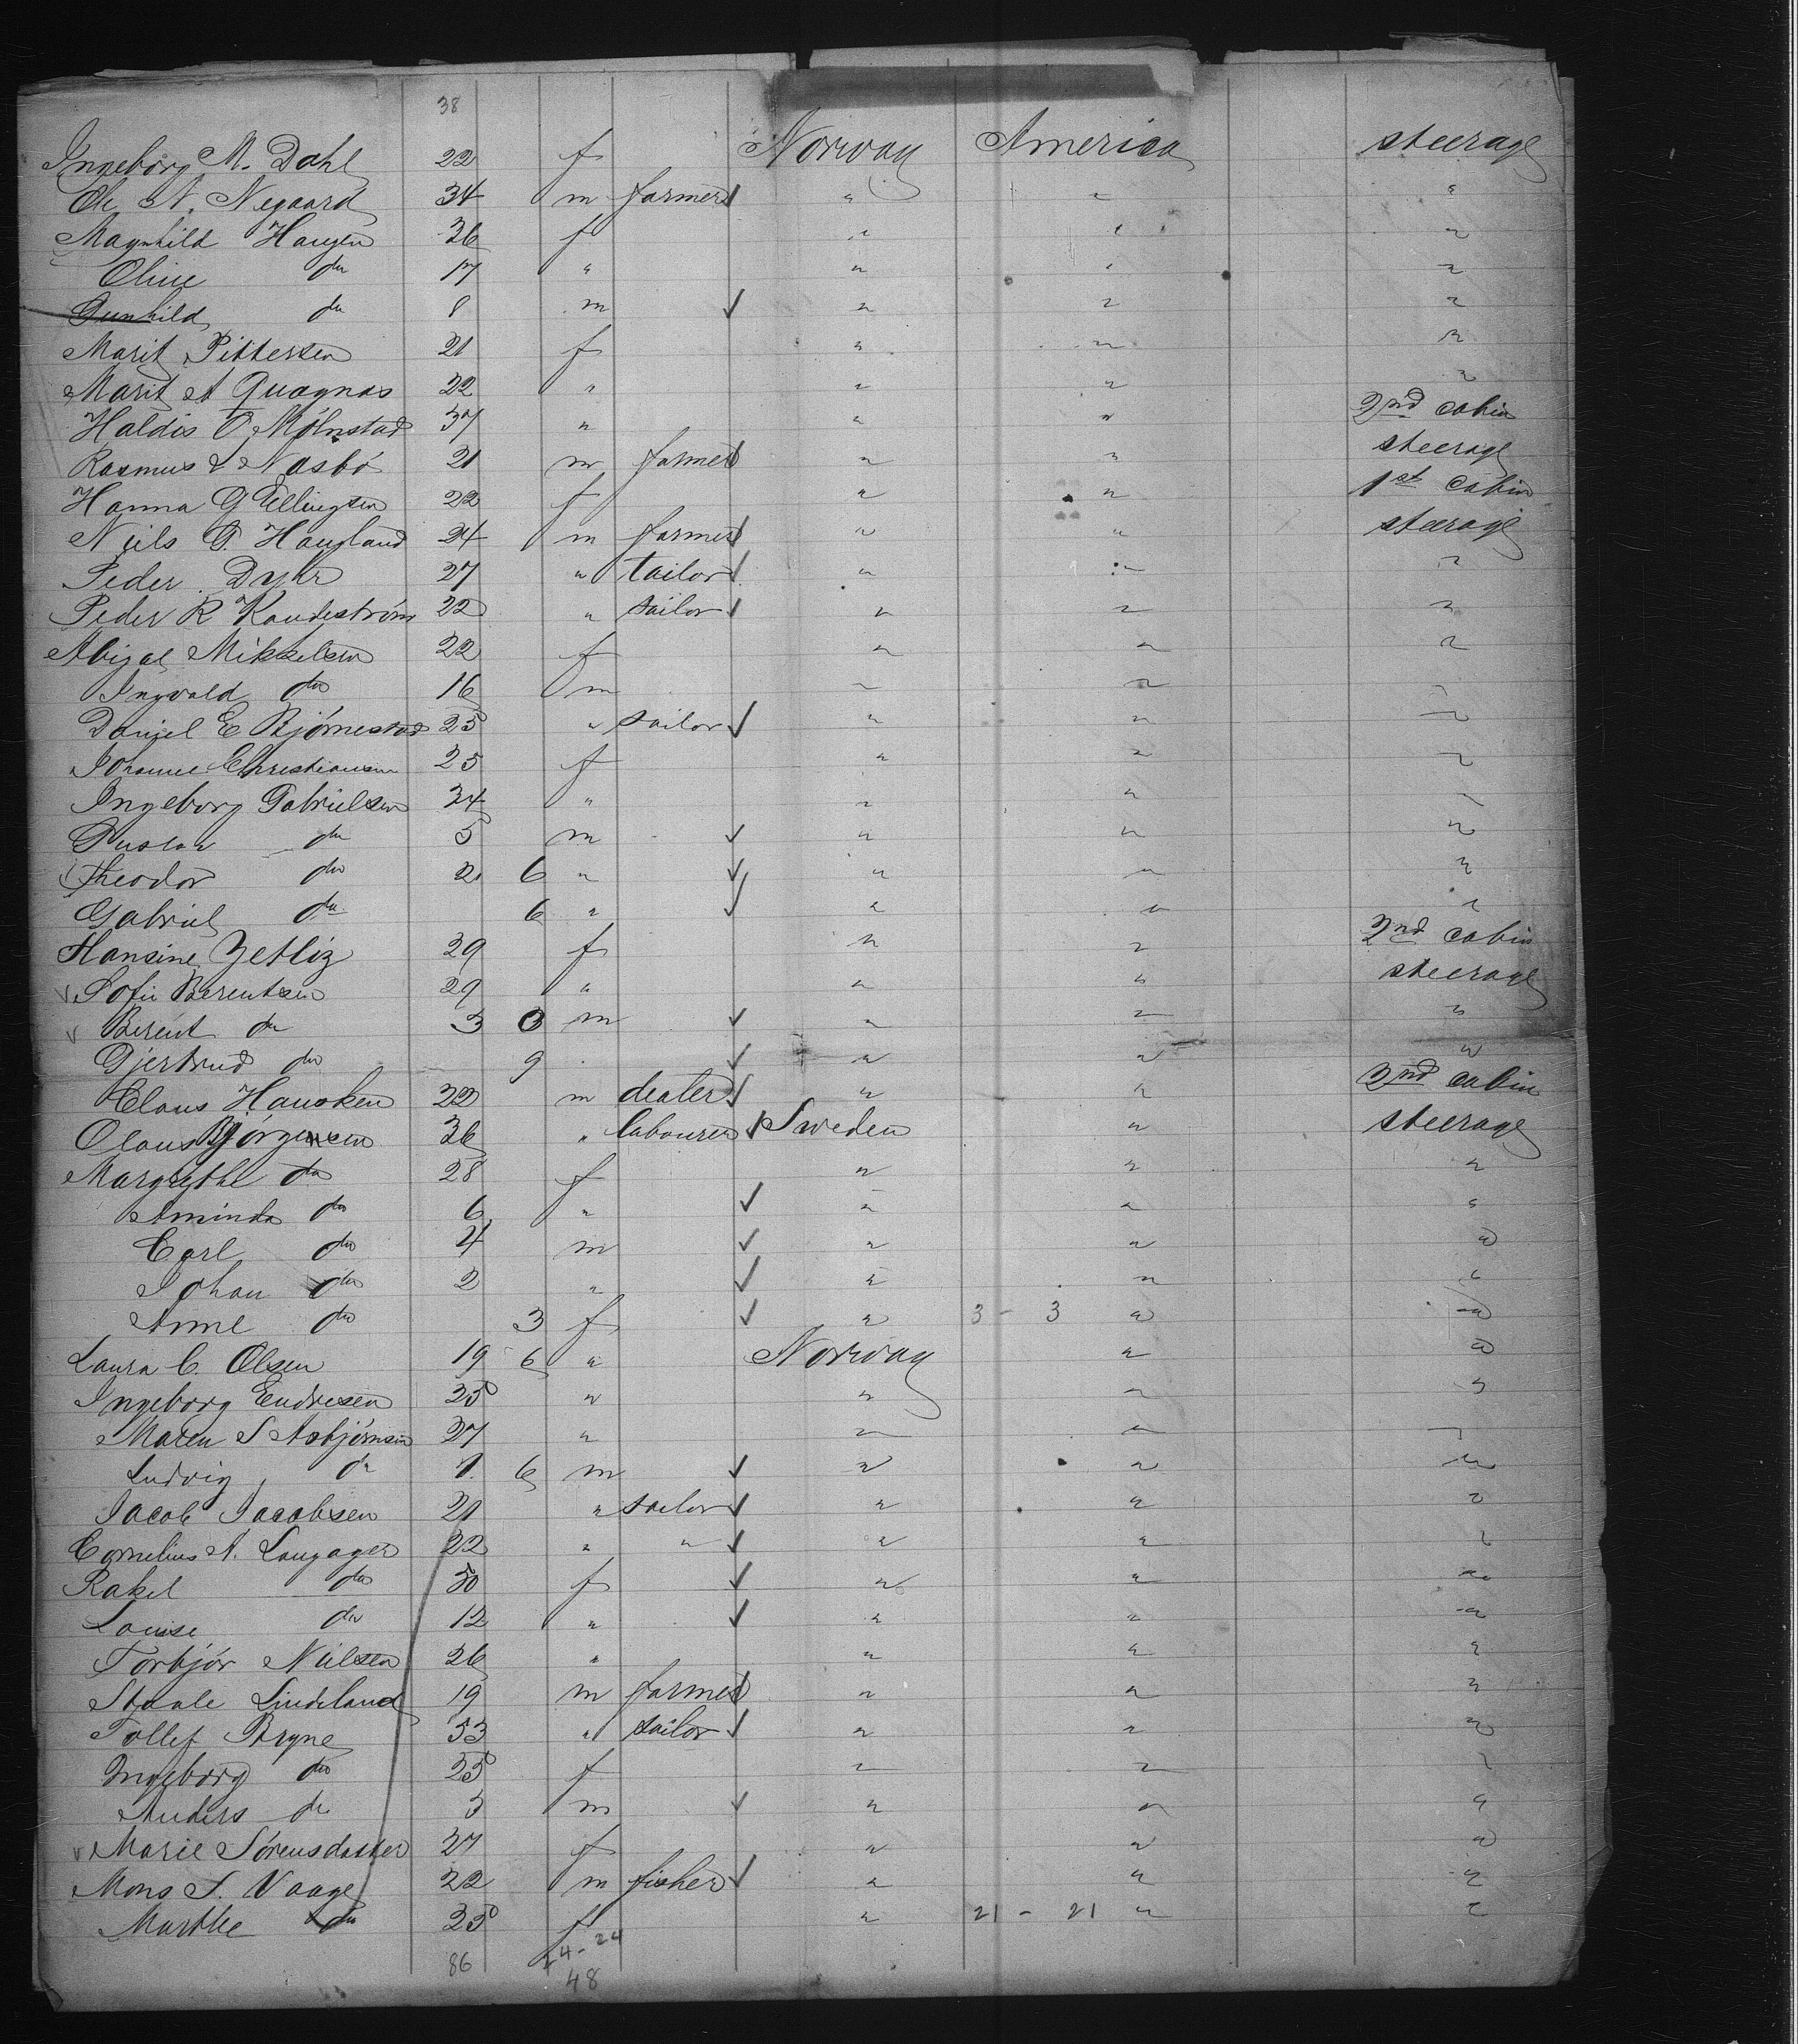 38
Ingeborg M. Dahl 22 f Norway America steerage
Ole A. Negaard 34 m farmer ✓ " " "
Magnhild Haugen 36 f " " "
Oline do 17 " " " "
Gunhild do 8 m ✓ " " "
Marit Pittersen 21 f " " "
Marit A Quagnas 22 " " " "
Haldis O. Mölnstad 37 " " " 2nd cabin
Rasmus Nasbö 21 m farmer " " steerage
Hanna G Ellingsen 22 f " " 1st cabin
Niels G. Haugland 24 m farmer " " steerage
Peder Dyhr 27 " tailor ✓ " " "
Peder R Kandeström 22 " sailor ✓ " " "
Abigal Mikkelsen 22 f " " "
Ingvald do 16 m " " "
Daniel E Bjørnestad 25 " sailor ✓ " " "
Johanne Christiansen 25 f " " "
Ingeborg Gabrielsen 34 " " " "
Gustav do 5 m ✓ " " "
Theodor do 2 6 " ✓ " " "
Gabriel do 6 " ✓ " " "
Hansine Zetliz 29 f " " 2nd cabin
✓ Sofie Berentsen 29 " " " steerage
✓ Berent do 3 3 m ✓ " " "
Gjertrud do 9 ✓ " " "
Claus Hausken 22 m dealer ✓ " " 2nd cabin
Olaus Bjørgensen 36 " labourer ✓ Sweden " steerage
Margrethe do 28 f " " "
Aminda do 6 " ✓ " " "
Carl do 4 m ✓ " " "
Johan do 2 " ✓ " " "
Anne do 3 f ✓ " 3 - 3 " "
Laura C. Olsen 19 6 " Norway " "
Ingeborg Endresen 25 " " " "
Maren S Asbjørnsen 27 " " " "
Ludvig do 7 6 m ✓ " " "
Jacob Jacobsen 21 " sailor ✓ " " "
Cornelius A. Langager 22 " " ✓ " " "
Rakel do 50 f ✓ " " "
Louise do 12 " ✓ " " "
Torbjør Nielsen 26 " " " "
Staale Lindeland 19 m farmer " " "
Tollef Bryne 33 " sailor ✓ " " "
Ingeborg do 25 f " " "
Anders do 3 m ✓ " " "
✓ Marie Sörensdatter 27 f " " "
Mons S. Vaage 22 m fisher ✓ " " "
Marthe do 25 f " 21 - 21 " "
86 24-24
48